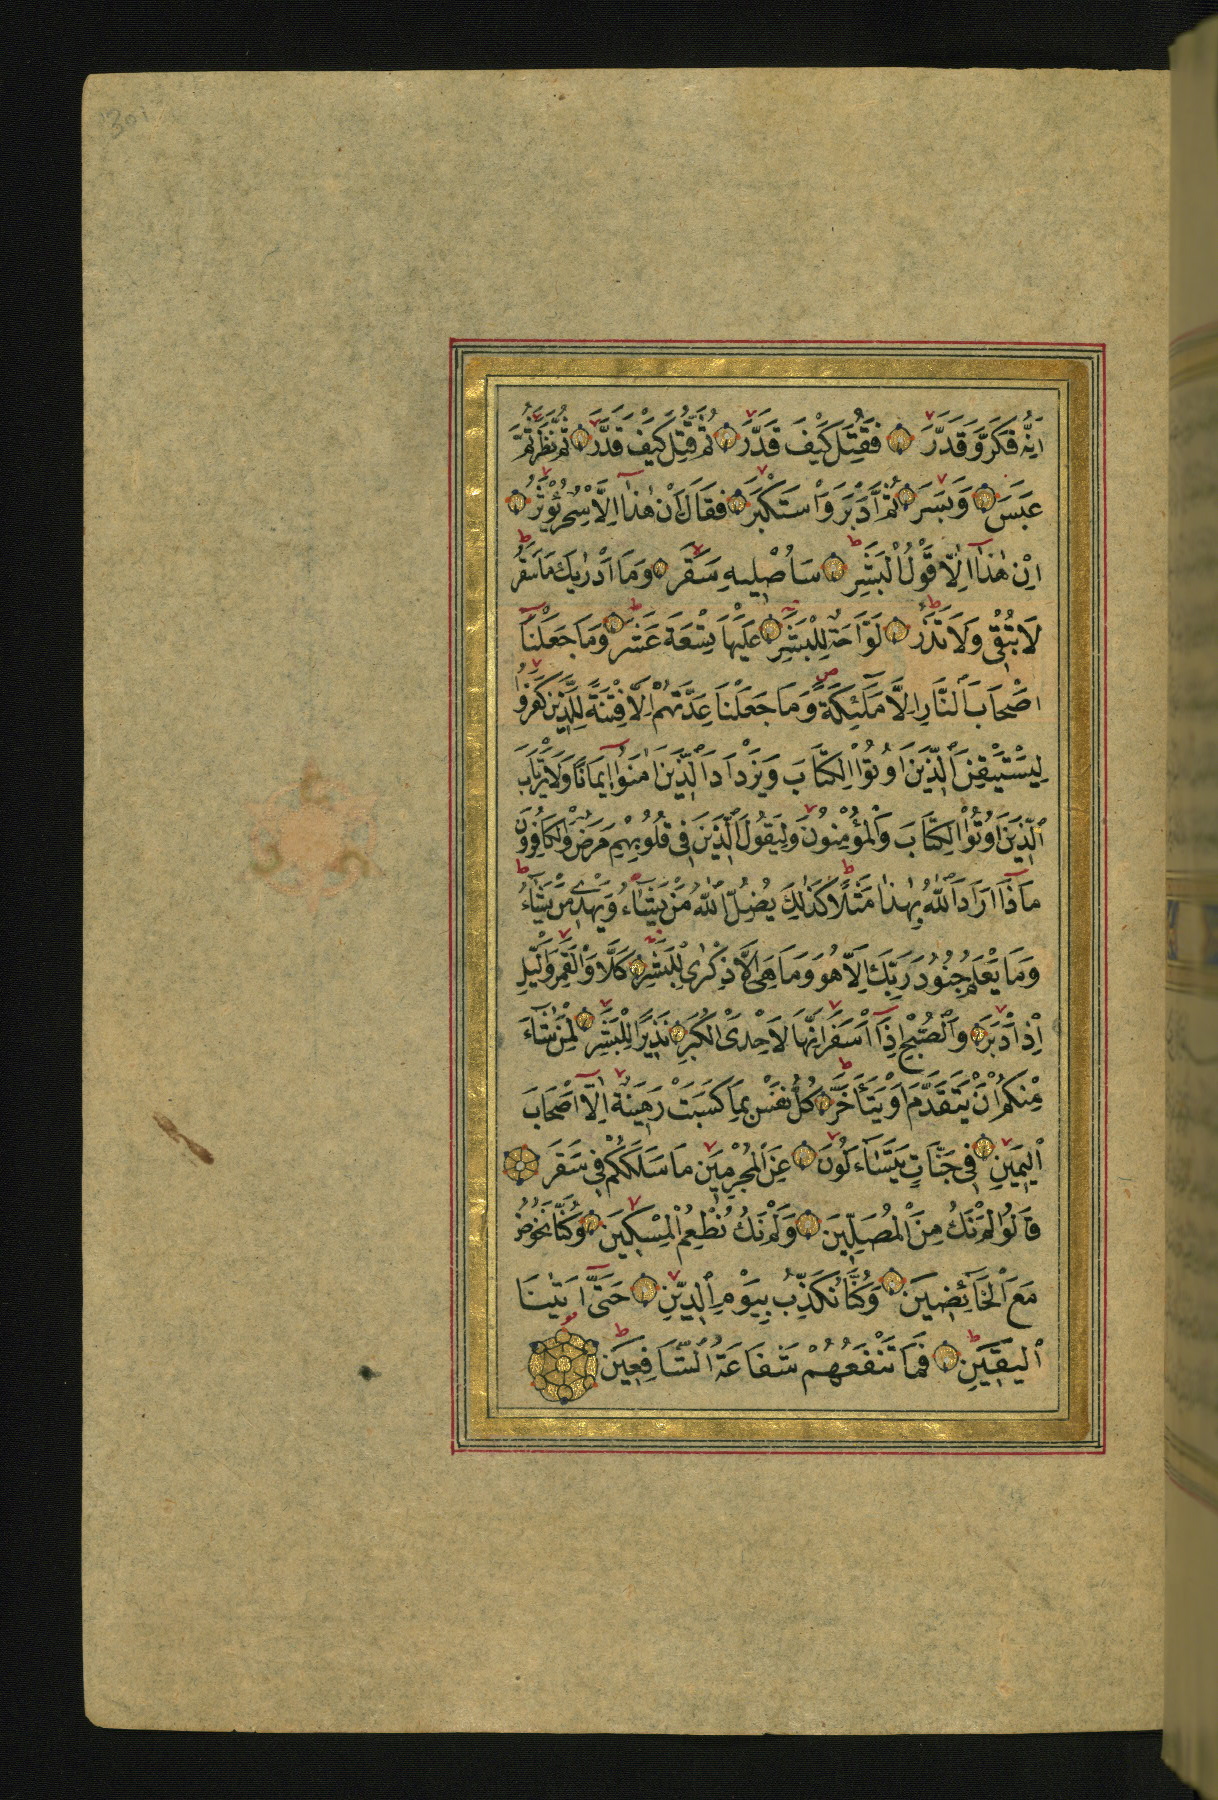 اِنَّهُ فَكَّرَ وَقَدَّرَ فَقُتِلَ كَيْفَ قَدَّرَ ثُمَّ قُتِلَ كَيْفَ قَدَّرَ ثُمَّ نَظَرَ ثُمَّ
عَبَسَ وَبَسَرَ ثُمَّ اَدْبَرَ وَاسْتَكْبَرَ فَقَالَ اِنْ هٰذَا اِلَّا سِحْرٌ يُؤْثَرُ
اِنْ هٰذَا اِلَّا قَوْلُ الْبَشَرِ سَاُصْلِيهِ سَقَرَ وَمَا اَدْرٰيكَ مَا سَقَرُ
لَا تُبْقِى وَلَا تَذَرُ لَوَّاحَةٌ لِلْبَشَرِ عَلَيْهَا تِسْعَةَ عَشَرَ وَمَا جَعَلْنَا
اَصْحَابَ النَّارِ اِلَّا مَلٰٓئِكَةً وَمَا جَعَلْنَا عِدَّتَهُمْ اِلَّا فِتْنَةً لِلَّذِينَ كَفَرُوا
لِيَسْتَيْقِنَ الَّذِينَ اُوتُوا الْكِتَابَ وَيَزْدَادَ الَّذِينَ اٰمَنُوا اِيمَانًا وَلَا يَرْتَابَ
الَّذِينَ اُوتُوا الْكِتَابَ وَالْمُؤْمِنُونَ وَلِيَقُولَ الَّذِينَ فِى قُلُوبِهِمْ مَرَضٌ وَالْكَافِرُونَ
مَاذَا اَرَادَ اللّٰهُ بِهٰذَا مَثَلًا كَذٰلِكَ يُضِلُّ اللّٰهُ مَنْ يَشَاءُ وَيَهْدِى مَنْ يَشَاءُ
وَمَا يَعْلَمُ جُنُودَ رَبِّكَ اِلَّا هُوَ وَمَا هِىَ اِلَّا ذِكْرٰى لِلْبَشَرِ كَلَّا وَالْقَمَرِ وَالَّيْلِ
اِذْ اَدْبَرَ وَالصُّبْحِ اِذَا اَسْفَرَ اِنَّهَا لَاِحْدَى الْكُبَرِ نَذِيرًا لِلْبَشَرِ لِمَنْ شَاءَ
مِنْكُمْ اَنْ يَتَقَدَّمَ اَوْ يَتَاَخَّرَ كُلُّ نَفْسٍ بِمَا كَسَبَتْ رَهِينَةٌ اِلَّا اَصْحَابَ
الْيَمِينِ فِى جَنَّاتٍ يَتَسَاءَلُونَ عَنِ الْمُجْرِمِينَ مَا سَلَكَكُمْ فِى سَقَرَ
قَالُوا لَمْ نَكُ مِنَ الْمُصَلِّينَ وَلَمْ نَكُ نُطْعِمُ الْمِسْكِينَ وَكُنَّا نَخُوضُ
مَعَ الْخَائِضِينَ وَكُنَّا نُكَذِّبُ بِيَوْمِ الدِّينِ حَتّٰى اَتٰينَا
الْيَقِينُ فَمَا تَنْفَعُهُمْ شَفَاعَةُ الشَّافِعِينَ